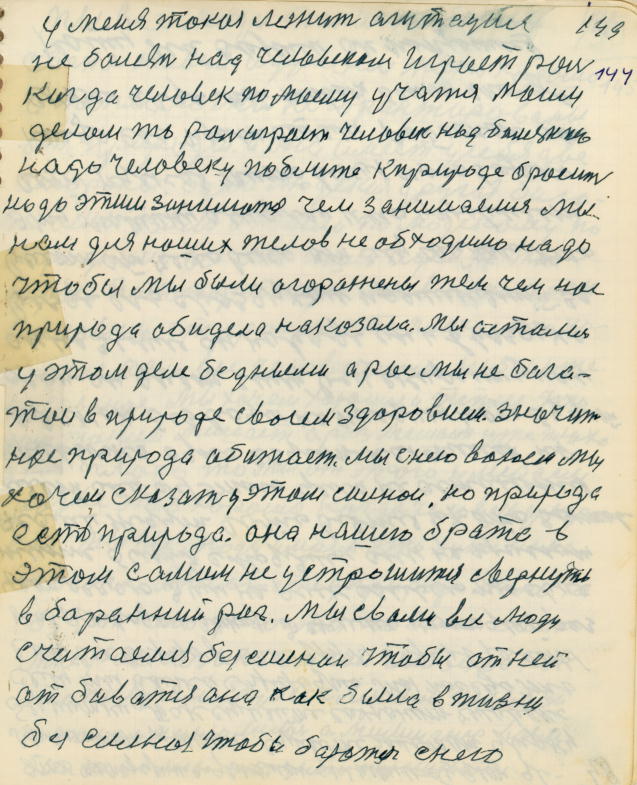 у меня такая лежит агитация 143
не болезн над человеком играет рол 144
когда человек по моему учатя моим
делом то рол играет человек над болезнею
надо человеку поближе к природе бросит
надо этим заниматя чем занимаемя мы
нам для наших телов не обходимо надо
чтобы мы были огорожены тем чем нас
природа обидела наказала. мы осталис
у этом деле бедными а рас мы не бага-
тои в природе своем здоровием. значит
нас природа обижает. мы снею воюем мы
хочем сказат у этом силнои, но природа
есть природа. она нашего брата в
этом самом не устрошится свернуть
в баранний рог. мы своли все люди
считаемя бессилнои чтобы от ней
отбаватя она как была в жизни
бессилноя чтобы баротя снею